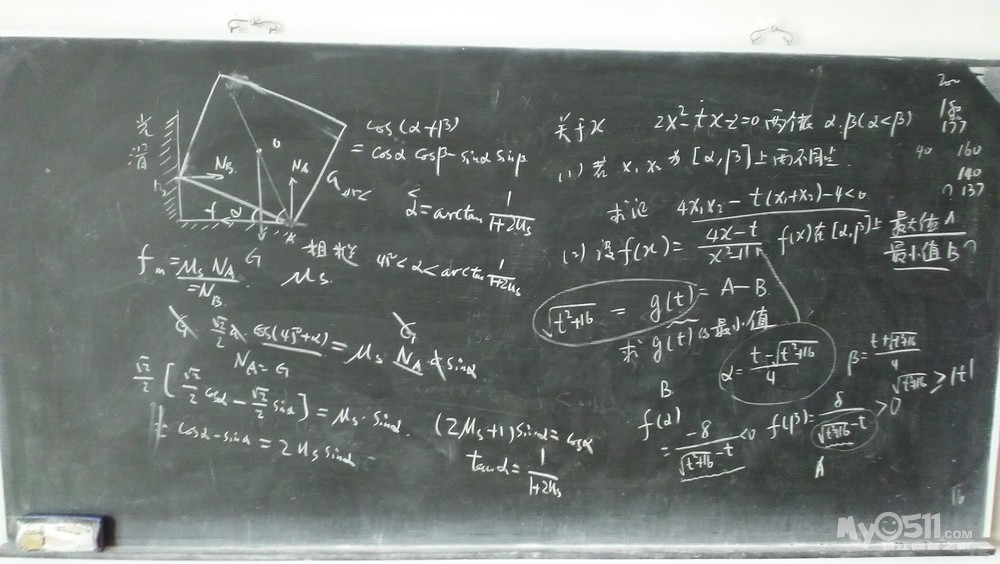 光
滑
N_B
N_A
O
G
f
α
A
G
粗糙
μs
f_m = μs N_A
= N_B
cos(α+β)
= cosα cosβ - sinα sinβ
α = arctan 1/(1+2μs)
45°<α<arctan 1/(1+2μs)
G √2/2 a cos(45°+α) = μs N_A a sinα
G
N_A = G
√2/2 [√2/2 cosα - √2/2 sinα] = μs·sinα
cosα - sinα = 2μs sinα
(2μs+1) sinα = cosα
tanα = 1/(1+2μs)
关于x 2x²-tx-2=0 两个根 α.β(α<β)
(1) 若 x₁ x₂ 为 [α,β] 上两不同点
求证 4x₁x₂ - t(x₁+x₂) - 4 < 0
(2) 设 f(x) = (4x-t)/(x²+1) f(x)在[α,β]上 最大值A
最小值B
√(t²+16) = g(t) = A-B
求 g(t) 的最小值
α = (t-√(t²+16))/4 β = (t+√(t²+16))/4
√(t²+16) > |t|
B
f(α) = -8/(√(t²+16)-t) <0 f(β) = 8/(√(t²+16)-t) >0
A
200
180
177
40 160
140
? 137
16
MyO511.COM